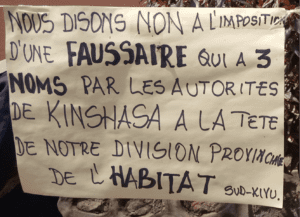 NOUS DISONS NON A L'IMPOSITION
D'UNE FAUSSAIRE QUI A 3
NOMS PAR LES AUTORITES
DE KINSHASA A LA TETE
DE NOTRE DIVISION PROVINCIALE
DE L'HABITAT SUD-KIVU.